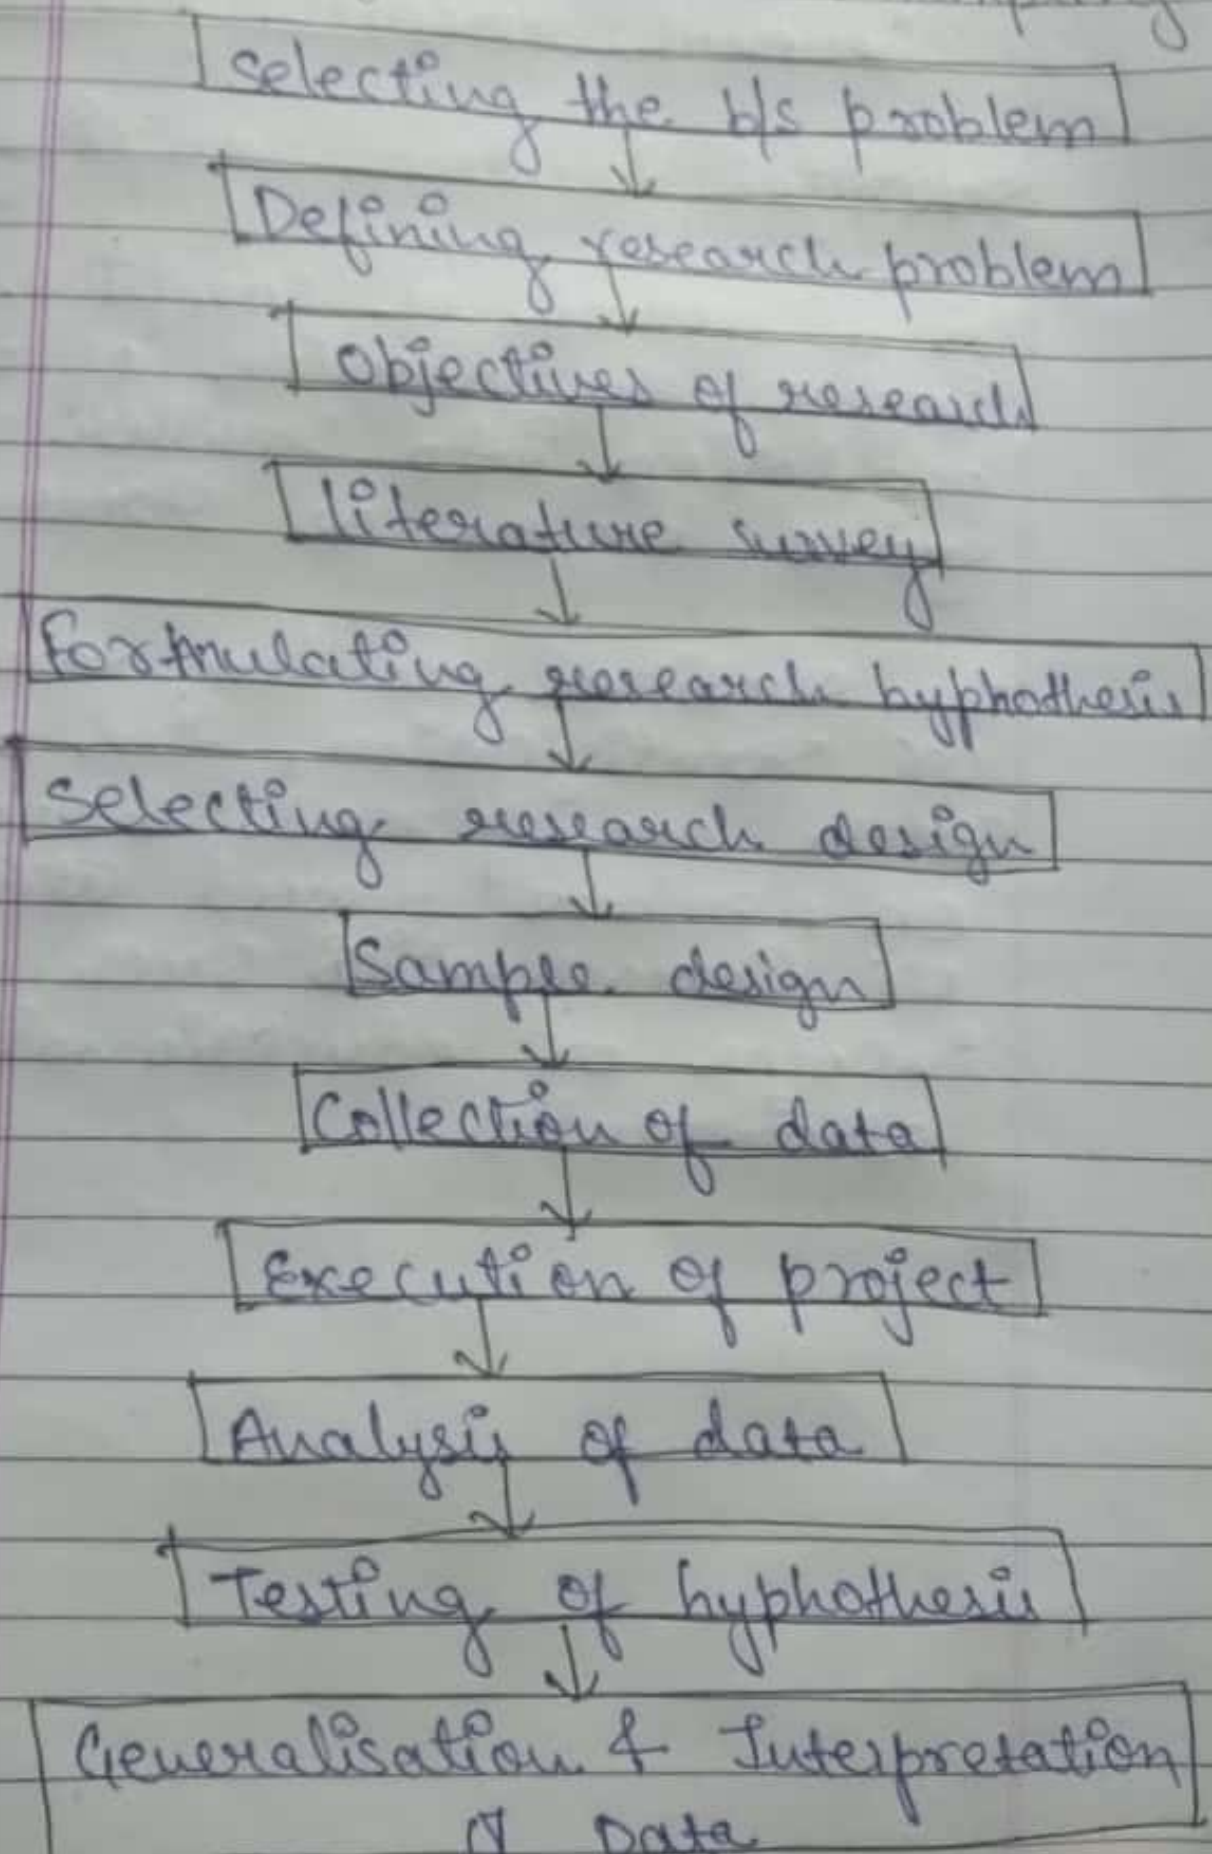 Selecting the b/s problem
Defining research problem
Objectives of research
literature survey
Formulating research hyphothesis
Selecting research design
Sample design
Collection of data
Execution of project
Analysis of data
Testing of hyphothesis
Generalisation & Interpretation
of Data